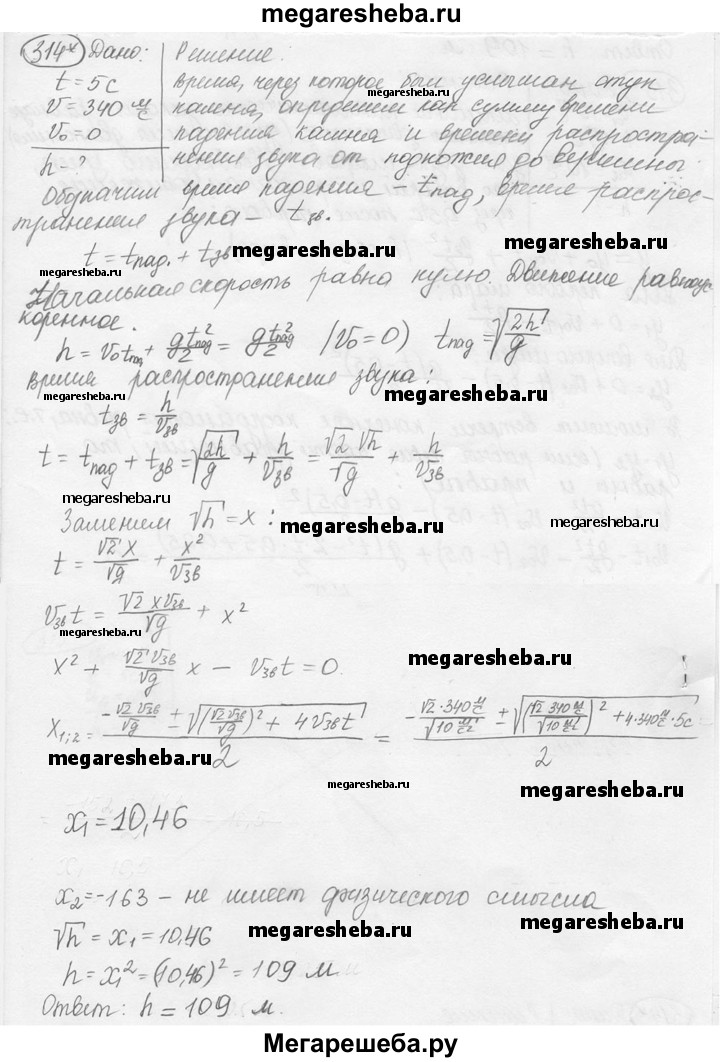 megaresheba.ru
314* Дано: Решение:
t = 5 с Время, через которое был услышан стук
v = 340 м/с камня, определяем как сумму времени
v₀ = 0 падения камня и времени распростра-
h = ? нения звука от подножия до вершины.
Обозначим время падения – tпад, время распрос-
транения звука – tзв.
t = tпад. + tзв
megaresheba.ru megaresheba.ru
Начальная скорость равна нулю. Движение равноус-
коренное.
h = v₀tпад + gt²пад/2 = gt²пад/2 (v₀ = 0) tпад = √(2h/g)
Время распространения звука:
tзв = h/vзв
megaresheba.ru
t = tпад + tзв = √(2h/g) + h/vзв = √2 √h/√g + h/vзв
megaresheba.ru
Заменим √h = x:
megaresheba.ru megaresheba.ru
t = √2 x/√g + x²/vзв
vзв t = √2 x vзв/√g + x²
megaresheba.ru
megaresheba.ru
x² + √2 vзв/√g x – vзв t = 0
x₁;₂ = (-√2 vзв/√g ± √((√2 vзв/√g)² + 4vзв t))/2 = (-√2·340 м/с/√10 м/с² ± √((√2 340 м/с/√10 м/с²)² + 4·340 м/с·5с))/2
megaresheba.ru
megaresheba.ru megaresheba.ru
x₁ = 10,46
x₂ = -163 – не имеет физического смысла
megaresheba.ru
√h = x₁ = 10,46
megaresheba.ru
h = x₁² = (10,46)² = 109 м
megaresheba.ru
Ответ: h = 109 м.
Мегарешеба.ру